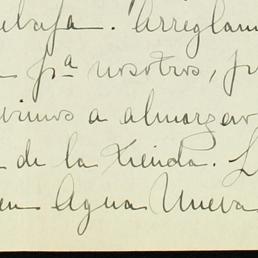 rebaja. Arreglam
pra nosotros, p
vinimos a almorzar
de la tienda. L
en Agua Nueva